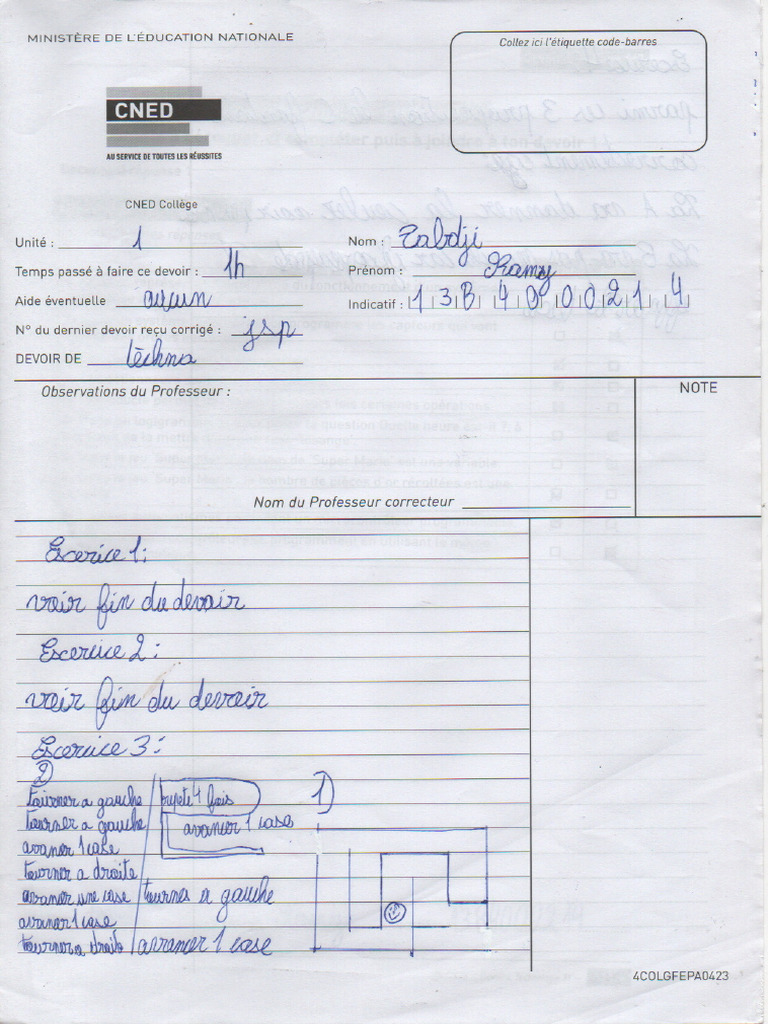 MINISTÈRE DE L'ÉDUCATION NATIONALE
Collez ici l'étiquette code-barres
CNED
AU SERVICE DE TOUTES LES RÉUSSITES
CNED Collège
Unité : 1
Nom : Zabdji
Temps passé à faire ce devoir : 1h
Prénom : Ramy
Aide éventuelle aucun
Indicatif : 13B4000214
N° du dernier devoir reçu corrigé : jsp
DEVOIR DE tèchno
Observations du Professeur :
NOTE
Nom du Professeur correcteur
Escerice 1:
voir fin du devoir
Escerice 2 :
voir fin du devoir
Escerice 3 :
2)
tourner a gauche
tourner a gauche
avancer 1 case
tourner a droite
avancer une case
avancer 1 case
tourner a droite
repete 4 fois
avancer 1 case
tournes a gauche
avancer 1 case
1)
4COLGFEPA0423